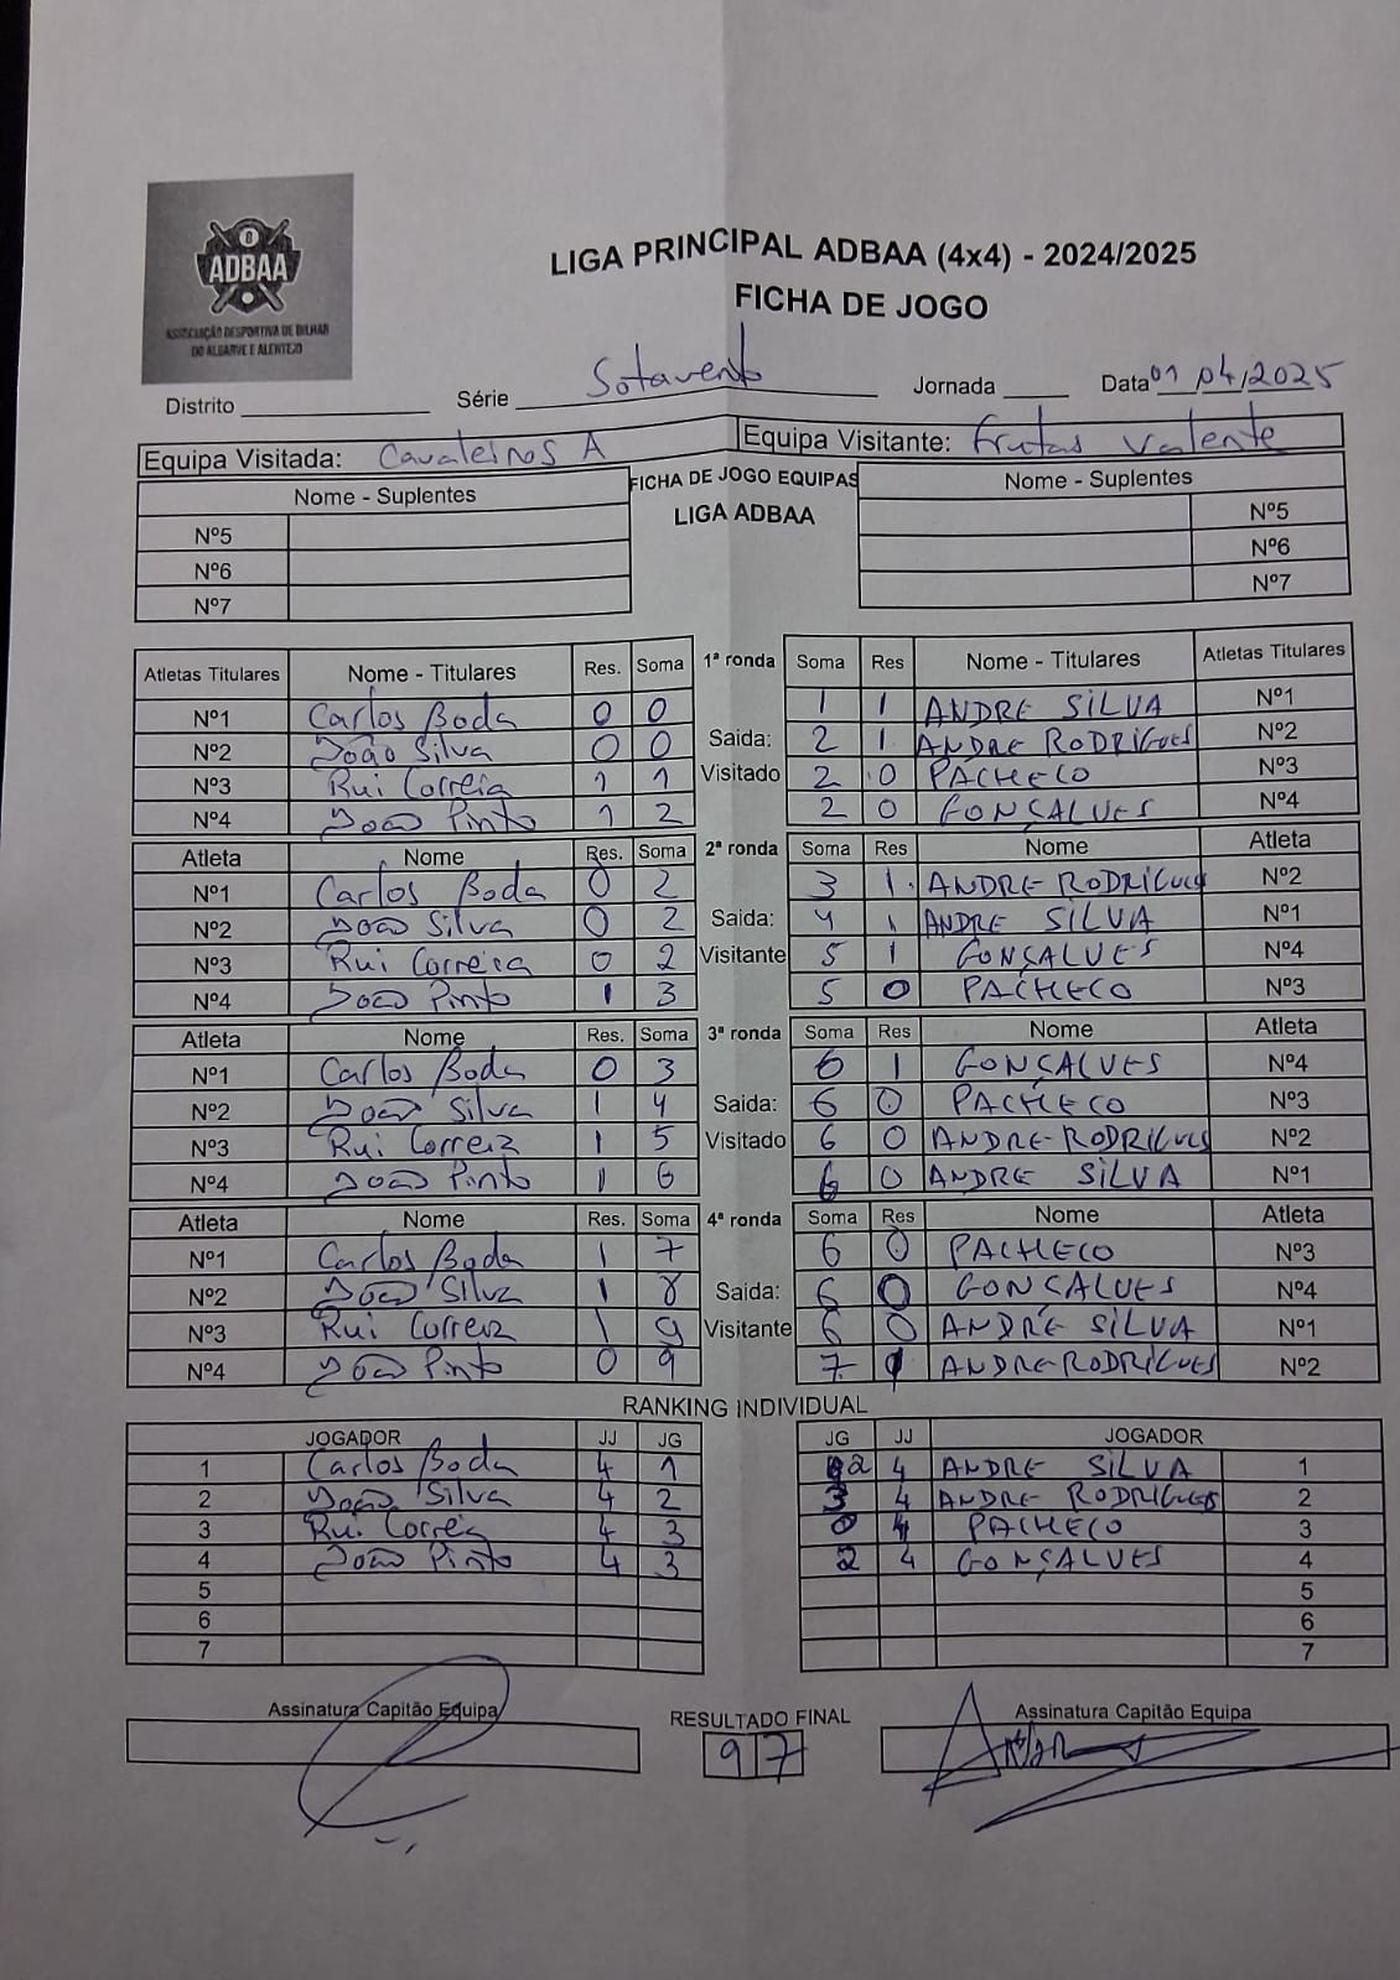 ADBAA
ASSOCIAÇÃO DESPORTIVA DE BILHAR
DO ALGARVE E ALENTEJO
LIGA PRINCIPAL ADBAA (4x4) - 2024/2025
FICHA DE JOGO
Distrito Série Sotavento Jornada Data 01/04/2025
Equipa Visitada: Cavaleiros A Equipa Visitante: Frutas Valente
Nome - Suplentes FICHA DE JOGO EQUIPAS Nome - Suplentes
LIGA ADBAA
Nº5 Nº5
Nº6 Nº6
Nº7 Nº7
Atletas Titulares Nome - Titulares Res. Soma 1ª ronda Soma Res Nome - Titulares Atletas Titulares
Nº1 Carlos Boda 0 0 1 1 ANDRE SILVA Nº1
Nº2 João Silva 0 0 Saida: 2 1 ANDRE RODRIGUES Nº2
Nº3 Rui Correia 1 1 Visitado 2 0 PACHECO Nº3
Nº4 João Pinto 1 2 2 0 GONÇALVES Nº4
Atleta Nome Res. Soma 2ª ronda Soma Res Nome Atleta
Nº1 Carlos Boda 0 2 3 1 ANDRE RODRIGUES Nº2
Nº2 João Silva 0 2 Saida: 4 1 ANDRE SILVA Nº1
Nº3 Rui Correia 0 2 Visitante 5 1 GONÇALVES Nº4
Nº4 João Pinto 1 3 5 0 PACHECO Nº3
Atleta Nome Res. Soma 3ª ronda Soma Res Nome Atleta
Nº1 Carlos Boda 0 3 6 1 GONÇALVES Nº4
Nº2 João Silva 1 4 Saida: 6 0 PACHECO Nº3
Nº3 Rui Correia 1 5 Visitado 6 0 ANDRE RODRIGUES Nº2
Nº4 João Pinto 1 6 6 0 ANDRE SILVA Nº1
Atleta Nome Res. Soma 4ª ronda Soma Res Nome Atleta
Nº1 Carlos Boda 1 7 6 0 PACHECO Nº3
Nº2 João Silva 1 8 Saida: 6 0 GONÇALVES Nº4
Nº3 Rui Correia 1 9 Visitante 6 0 ANDRE SILVA Nº1
Nº4 João Pinto 0 9 7 1 ANDRE RODRIGUES Nº2
RANKING INDIVIDUAL
JOGADOR JJ JG JG JJ JOGADOR
1 Carlos Boda 4 1 2 4 ANDRE SILVA 1
2 João Silva 4 2 3 4 ANDRE RODRIGUES 2
3 Rui Correia 4 3 0 4 PACHECO 3
4 João Pinto 4 3 2 4 GONÇALVES 4
5 5
6 6
7 7
Assinatura Capitão Equipa RESULTADO FINAL Assinatura Capitão Equipa
9 7